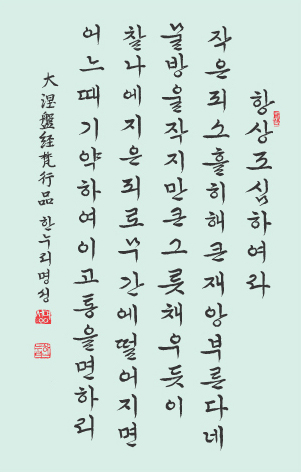 항상조심하여라
작은죄소홀히해큰재앙부른다네
물방울작지만큰그릇채우듯이
찰나에지은죄로무간에떨어지면
어느때기약하여이고통을면하리
大涅盤経梵行品 한누리명성